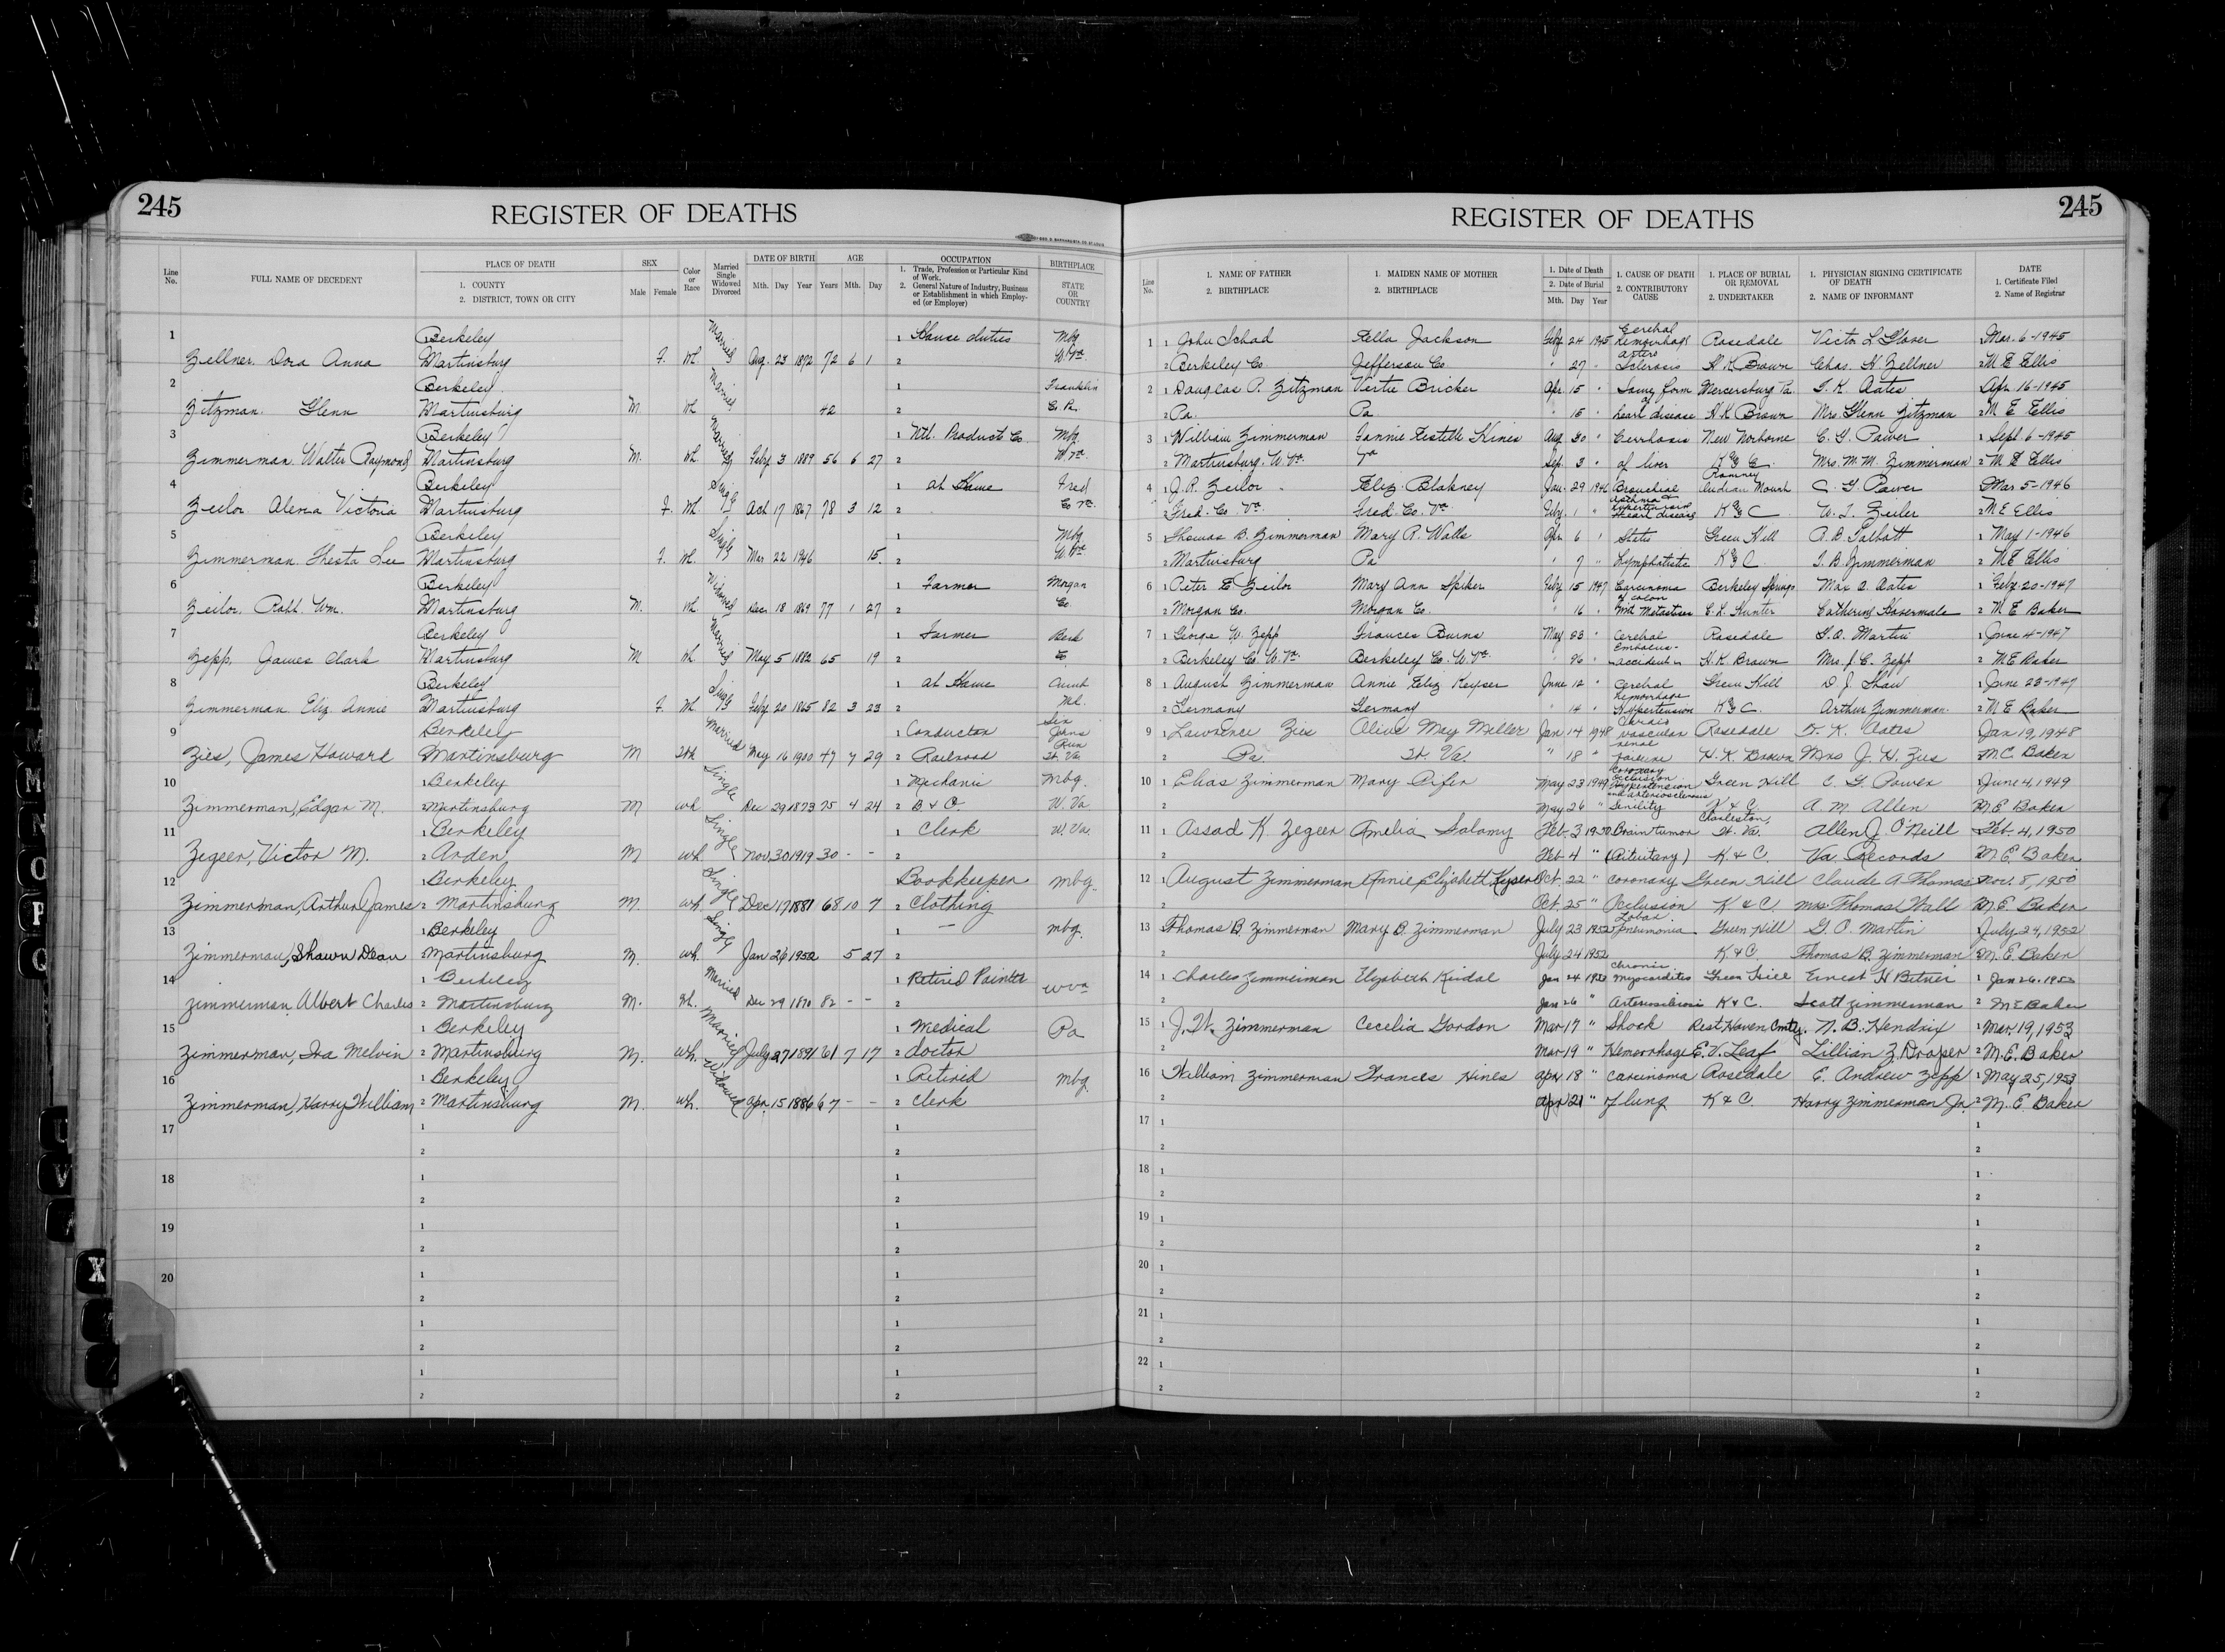 245
REGISTER OF DEATHS
Line No.
FULL NAME OF DECEDENT
PLACE OF DEATH
1. COUNTY
2. DISTRICT, TOWN OR CITY
SEX
Male Female
Color or Race
Married Single Widowed Divorced
DATE OF BIRTH
Mth. Day Year
AGE
Years Mth. Day
OCCUPATION
1. Trade, Profession or Particular Kind of Work.
2. General Nature of Industry, Business or Establishment in which Employed (or Employer)
BIRTHPLACE
STATE OR COUNTRY
1 Berkeley Married 1 House duties Mbg
Zellner. Dora Anna Martinsburg F. Wh Aug. 23 1872 72 6 1 2 W.Va
2 Berkeley Married 1 Franklin
Zitzman. Glenn Martinsburg M. Wh 42 2 Co. Pa.
3 Berkeley Married 1 Ntl. Product Co. Mbg
Zimmerman. Walter Raymond Martinsburg M. Wh Feby 3 1889 56 6 27 2 W.Va.
4 Berkeley Single 1 at Home Fred
Zeilor Victoria Martinsburg F. Wh. Oct 17 1867 78 3 12 2 Co Va.
5 Berkeley Single 1 Mbg
Zimmerman. Lee Martinsburg F. Wh. Mar 22 1946 15. 2 W.Va
6 Berkeley Widowed 1 Farmer Morgan
Zeilor. Robt. Wm. Martinsburg M. Wh Dec. 18 1869 77 1 27 2 Co.
7 Berkeley Married 1 Farmer Berk
Zepp, James Clark Martinsburg M Wh May 5 1882 65 19 2 Co
8 Berkeley Single 1 at Home
Zimmerman. Eliz. Annie Martinsburg F. Wh Feby 20 1865 82 3 23 2 Md.
9 Berkeley Married 1 Conductor Johns Run
Zies, James Howard Martinsburg M Wh May 16 1900 47 7 29 2 Railroad W. Va.
10 1 Berkeley Single 1 Mechanic Mbg.
Zimmerman, Edgar M. 2 Martinsburg M wh Dec 29 1873 75 4 24 2 B & O. W. Va
11 1 Berkeley Single 1 Clerk W. Va.
Zegeer, Victor M. 2 Arden M wh. Nov. 30 1919 30 - - 2
12 1 Berkeley Single Bookkeeper mbg.
Zimmerman, Arthur James 2 Martinsburg M. wh. Dec 17 1881 68 10 7 2 Clothing
13 1 Berkeley Single 1 — mbg.
Zimmerman, Shawn Dean 2 Martinsburg M. wh. Jan 26 1952 5 27 2
14 1 Berkeley Married 1 Retired Painter W Va
Zimmerman Albert Charles 2 Martinsburg M. Wh. Dec 29 1870 82 - - 2
15 1 Berkeley Married 1 medical Pa
Zimmerman, Ira Melvin 2 Martinsburg M. wh. July 27 1891 61 7 17 2 doctor
16 1 Berkeley Widowed 1 Retired mbg.
Zimmerman, Harry William 2 Martinsburg M. wh. Apr. 15 1886 67 - - 2 Clerk
17 1
2
18 1
2
19 1
2
20 1
2
1
2
1
2
245
REGISTER OF DEATHS
Line No.
1. NAME OF FATHER
2. BIRTHPLACE
1. MAIDEN NAME OF MOTHER
2. BIRTHPLACE
1. Date of Death
2. Date of Burial
Mth. Day Year
1. CAUSE OF DEATH
2. CONTRIBUTORY CAUSE
1. PLACE OF BURIAL OR REMOVAL
2. UNDERTAKER
1. PHYSICIAN SIGNING CERTIFICATE OF DEATH
2. NAME OF INFORMANT
DATE
1. Certificate Filed
2. Name of Registrar
1 1 John Schad Ella Jackson Feby 24 1945 Cerebral Hemorrhage Rosedale Victor L Glover Mar. 6-1945
2 Berkeley Co Jefferson Co " 27 " Arterio Sclerosis H K Brown Chas. H Zellner 2 M E Ellis
2 1 Douglas P. Zitzman Virtie Bricker Apr. 15 " Some form of Mercersburg Pa. G. K. Oates Apr. 16-1945
2 Pa. Pa " 15 " heart disease H K Brown Mrs. Glenn Zitzman 2 M E Ellis
3 1 William Zimmerman Fannie Estelle Hines Aug. 30 " Cirrhosis New Norborne C. G. Power 1 Sept. 6-1945
2 Martinsburg. W.Va. Va Sep. 3 " of liver K & C. Mrs. M. M. Zimmerman 2 M E Ellis
4 1 J. R. Zeilor Eliz. Blakney Jan. 29 1946 Bronchial asthma & Romney Indian Mound C. G. Power Mar. 5-1946
2 Fred. Co. Va. Fred. Co. Va. Feby. 1 " hypertensive heart disease K & C W. T. Zeiler 2 M E Ellis
5 1 Thomas B. Zimmerman Mary R. Walls Apr. 6 " Status Green Hill A. B. Talbott 1 May 1-1946
2 Martinsburg Pa " 7 " Lymphatitis K & C. T. B. Zimmerman 2 M E Ellis
6 1 Peter E Zeilor Mary Ann Spiker Feby 15 1947 Carcinoma of colon Berkeley Springs Max O. Oates 1 Feby 20-1947
2 Morgan Co. Morgan Co. " 16 " with Metastases C. L. Hunter Catherine Hovermale 2 M E Baker
7 1 George W. Zepp Frances Burns May 23 " Cerebral Rosedale G. O. Martin 1 June 4-1947
2 Berkeley Co. W.Va. Berkeley Co. W.Va. " 26 " Embolus - accident H. K. Brown Mrs. J. C. Zepp 2 M E Baker
8 1 August Zimmerman Annie Eliz Keyser June 12 " Cerebral Hemorrhage Green Hill D. J. Shaw 1 June 23-1947
2 Germany Germany " 14 " Hypertension K & C. Arthur Zimmerman. 2 M E Baker
9 1 Lawrence Zies Olive May Miller Jan 14 1948 vascular renal Rosedale G. K. Oates Jan 19, 1948
2 Pa. W. Va. " 18 " failure H. K. Brown Mrs J. H. Zies M.E. Baker
10 1 Elias Zimmerman Mary Pifer May 23 1949 Coronary occlusion Hypertension and arteriosclerosis Green Hill C. G. Power June 4, 1949
2 May 26 " Senility K & C. A. M. Allen M E Baker
11 1 Assad K. Zegeer Amelia Salamy Feb. 3 1950 Brain tumor Charleston, W. Va. Allen J. O'Neill Feb. 4, 1950
2 Feb 4 " (Pituitary) K. & C. Va. Records M. E. Baker
12 1 August Zimmerman Annie Elizabeth Keyser Oct. 22 " coronary Green Hill Claude A. Thomas Nov. 8, 1950
2 Oct. 25 " Occlusion K & C. Mrs. Thomas Wall M. E. Baker
13 1 Thomas B. Zimmerman Mary B. Zimmerman July 23 1952 Lobar pneumonia Green Hill G. O. Martin 1 July 24, 1952
2 July 24 1952 K & C. Thomas B. Zimmerman M. E. Baker
14 1 Charles Zimmerman Elizabeth Jan 24 1953 chronic myocarditis Green Hill Ernest H Bitner 1 Jan 26. 1953
2 Jan 26 " Arteriosclerosis K & C. Scott Zimmerman 2 M E Baker
15 1 J. W. Zimmerman Cecelia Gordon Mar 17 " Shock Rest Haven Cmty. N. B. Hendrix 1 Mar. 19, 1953
2 Mar 19 " Hemorrhage E. V. Leaf Lillian Z. Draper 2 M. E. Baker
16 1 William Zimmerman Frances Hines apr 18 " carcinoma Rosedale E. Andrew Zepp 1 May 25, 1953
2 apr 21 " of lung K & C. Harry Zimmerman Jr. 2 M. E. Baker
17 1 1
2 2
18 1 1
2 2
19 1 1
2 2
20 1 1
2 2
21 1 1
2 2
22 1 1
2 2
M
N
O
P
Q
U
V
X